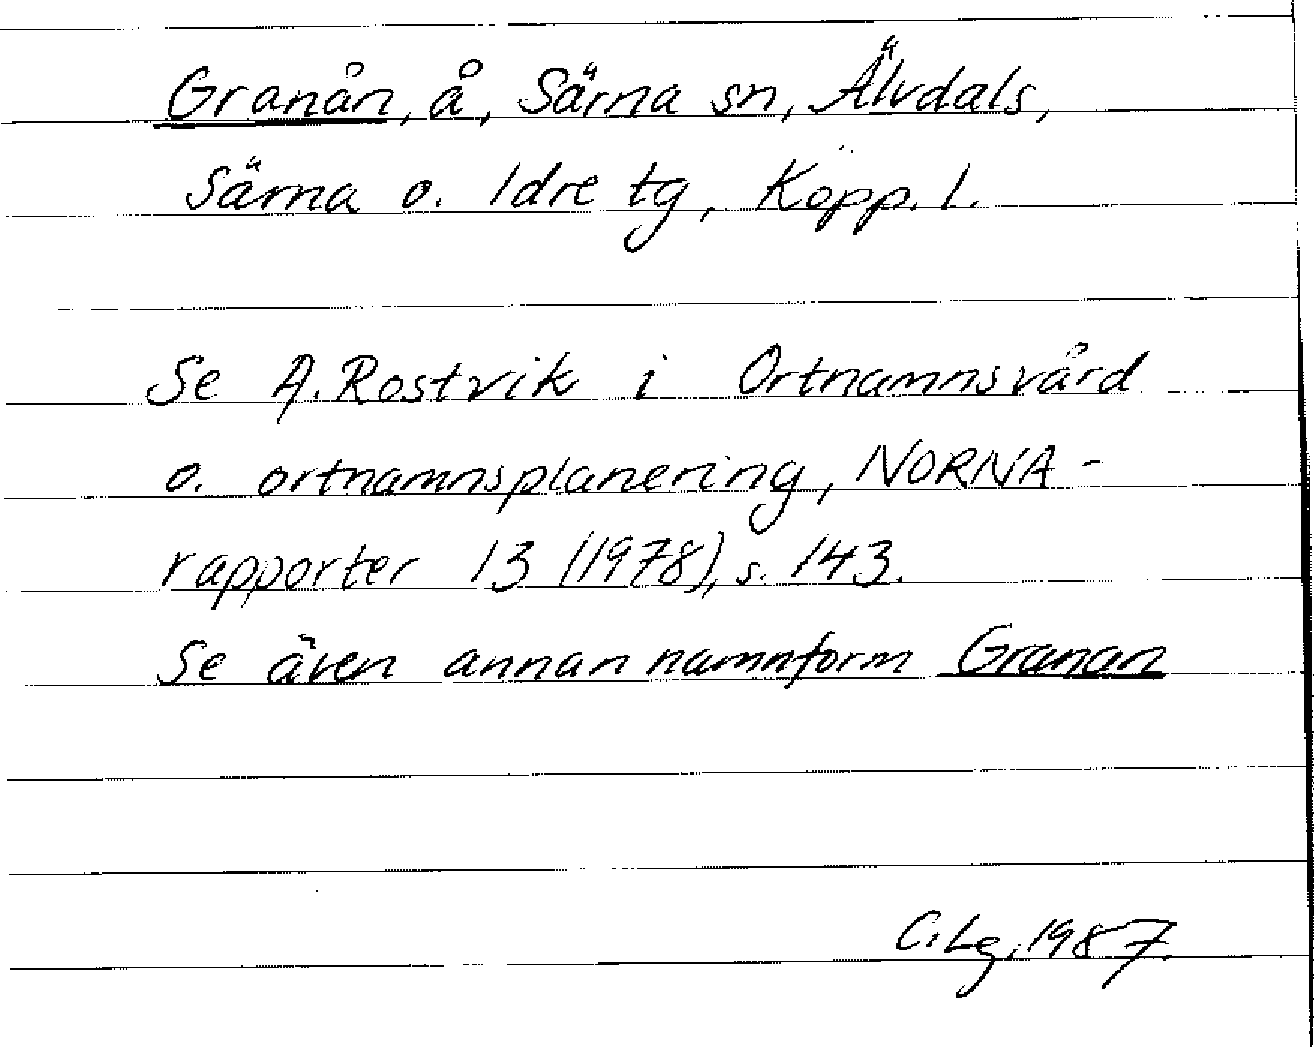 Granån, å, Särna sn, Älvdals,
Särna o. Idre tg, Kopp. l.
Se A. Rostvik i Ortnamnsvård
o. ortnamnsplanering, NORNA-
rapporter 13 (1978), s. 143.
Se även annan namnform Granan
C. Lg. 1987.